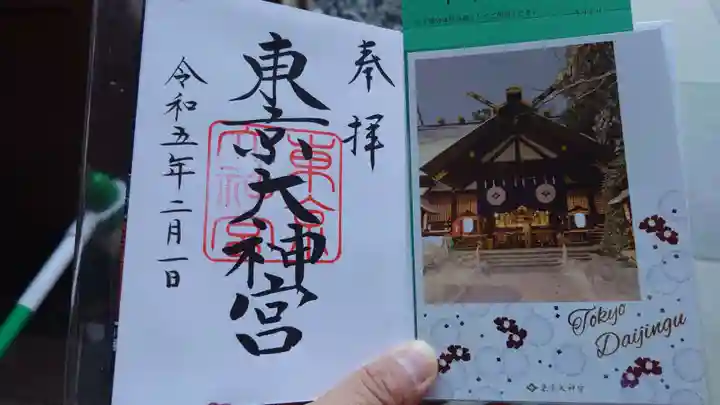 奉拝
東京大神宮
令和五年二月一日
東京大神宮
Tokyo
Daijingu
東京大神宮